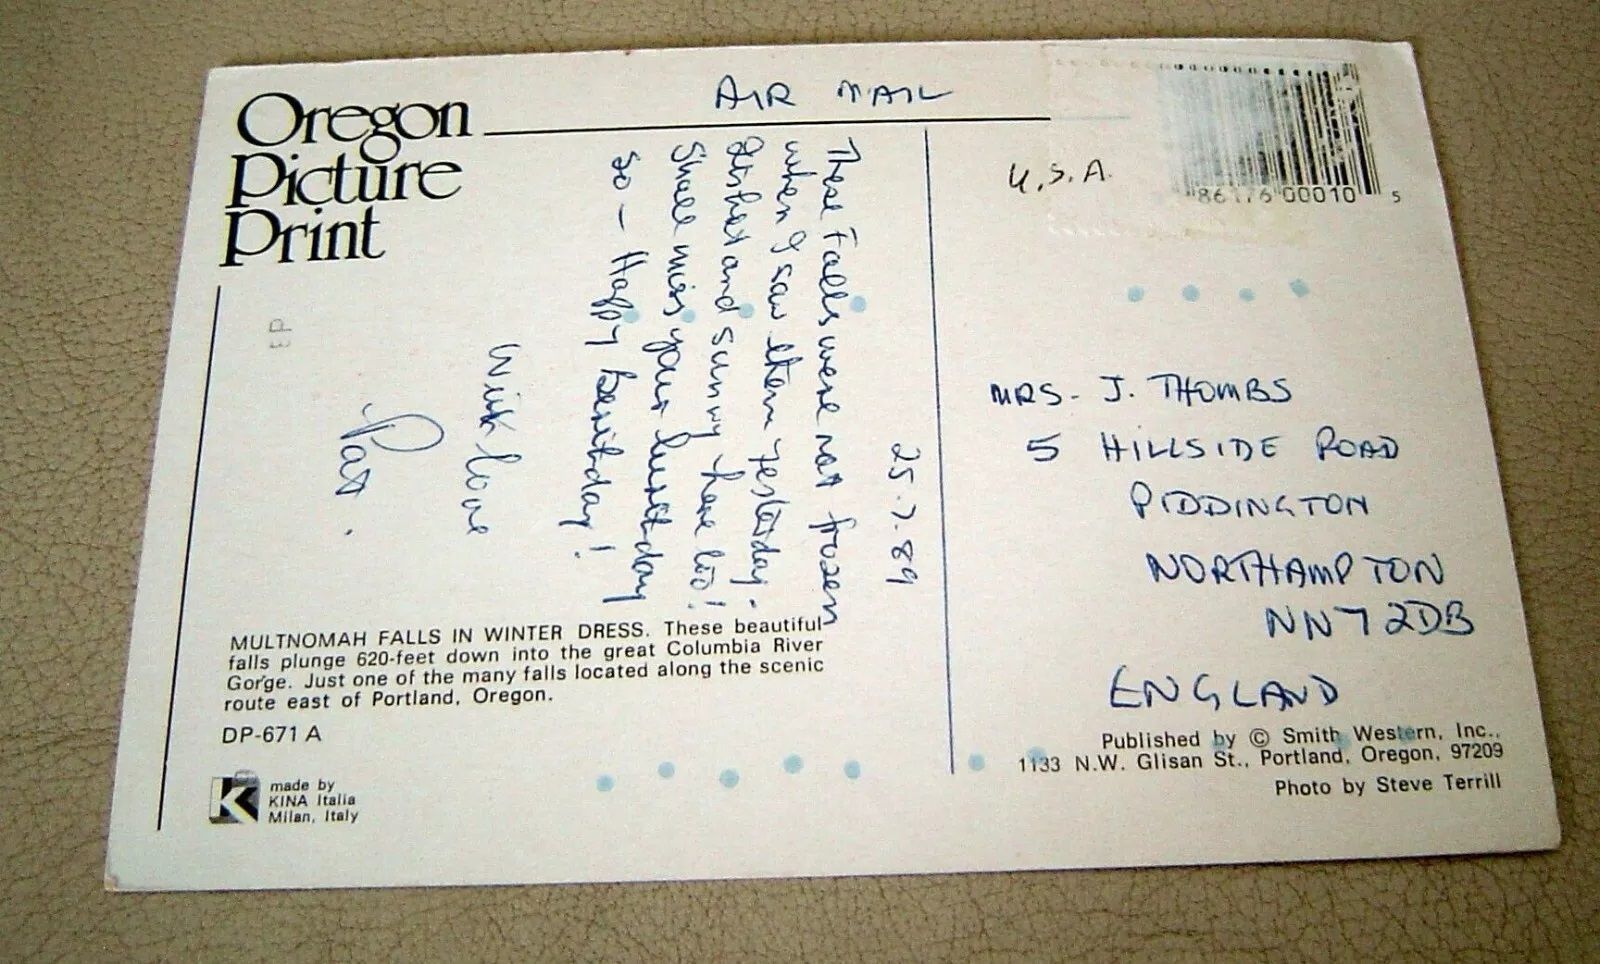 Oregon
Picture
Print
AIR MAIL
U.S.A.
86176 00010 5
25.7.89
These Falls were not frozen
when I saw them yesterday.
and sunny here too!
Shall miss your birthday
So — Happy birthday!
With love
Pat.
MRS. J. THOMBS
5 HILLSIDE ROAD
PIDDINGTON
NORTHAMPTON
NN7 2DB
ENGLAND
MULTNOMAH FALLS IN WINTER DRESS. These beautiful
falls plunge 620-feet down into the great Columbia River
Gorge. Just one of the many falls located along the scenic
route east of Portland, Oregon.
DP-671 A
K
made by
KINA Italia
Milan, Italy
Published by © Smith Western, Inc.,
1133 N.W. Glisan St., Portland, Oregon, 97209
Photo by Steve Terrill